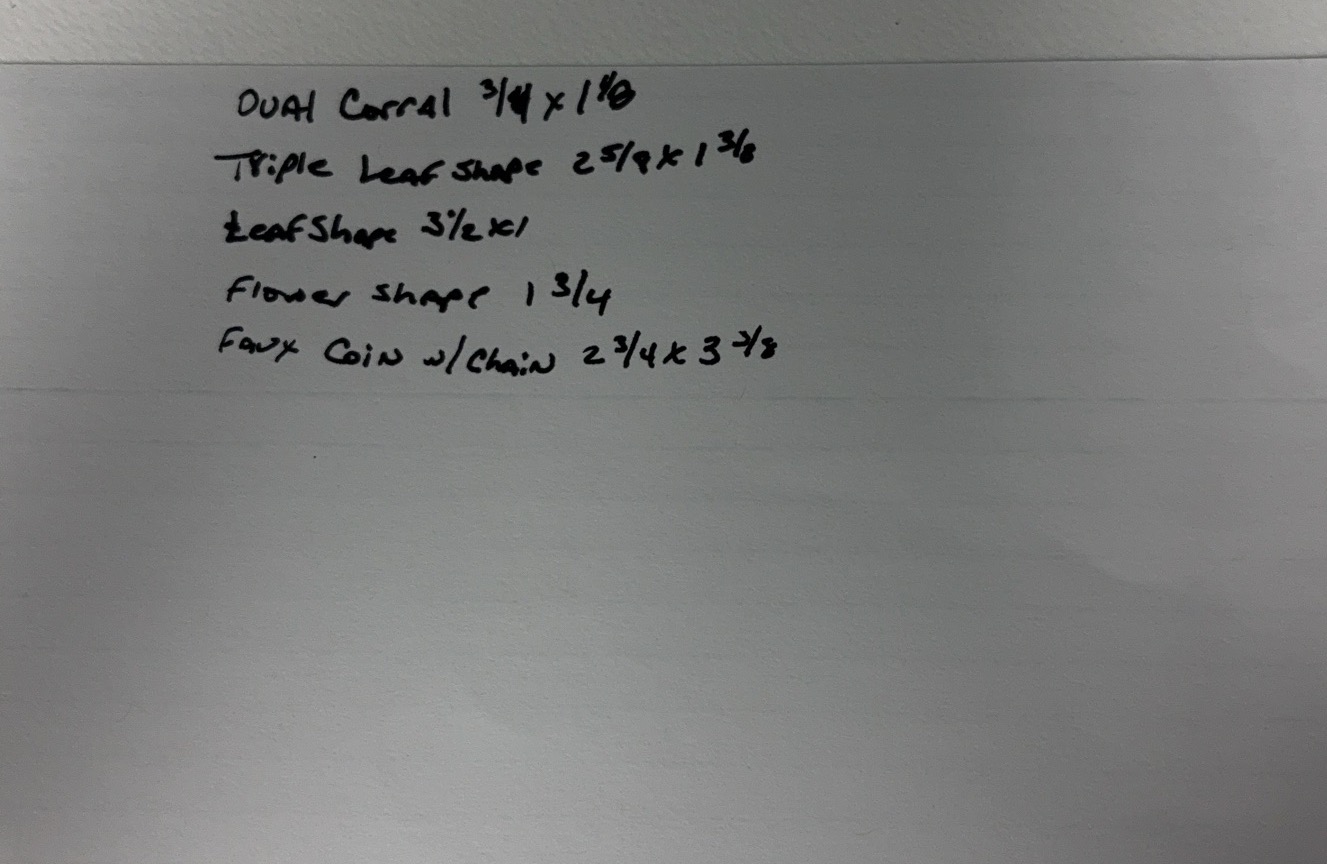 Oval Corral 3/4 x 1 1/8
Triple Leaf Shape 2 5/8 x 1 3/8
Leaf Shape 3 1/2 x 1
Flower Shape 1 3/4
Faux Coin w/ Chain 2 3/4 x 3 3/8